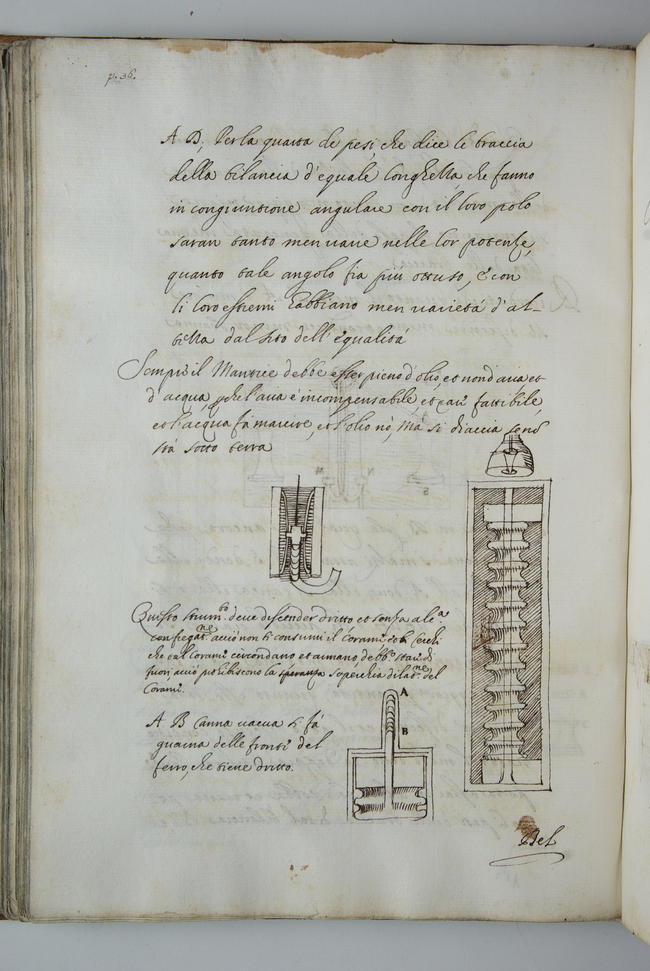 p. 36.
A B, Per la quarta de pesi, che dice le braccia
della bilancia d'equale longhezza che fanno
in congiuntione angulare con il loro polo
saran tanto men varie nelle lor potenze,
quanto tale angolo fia più ottuso, è con
li loro estremi habbiano men varietá d'al-
tezza dal sito dell'equalitá
Sempre il Mantice debbe esser pieno d'olio, et non d'aria, et
d'acqua, perche l'aria è incompensabile, et fattibile,
et l'acqua fá marcire, et l'olio nò, Ma si diaccia
stá sotto terra
N
N
S
Questo strumto deve descender dritto et senza alca
confregatne acciò non si consumi il Corame et li Cerchi
che dal Corame circondano et armano debbo star di
fuori acciò prohibiscono la speranza soperchia dilatne del
Corame.
A B Canna vacua si fá
guaina delle fronti del
ferro, che tiene dritto.
A
B
Del